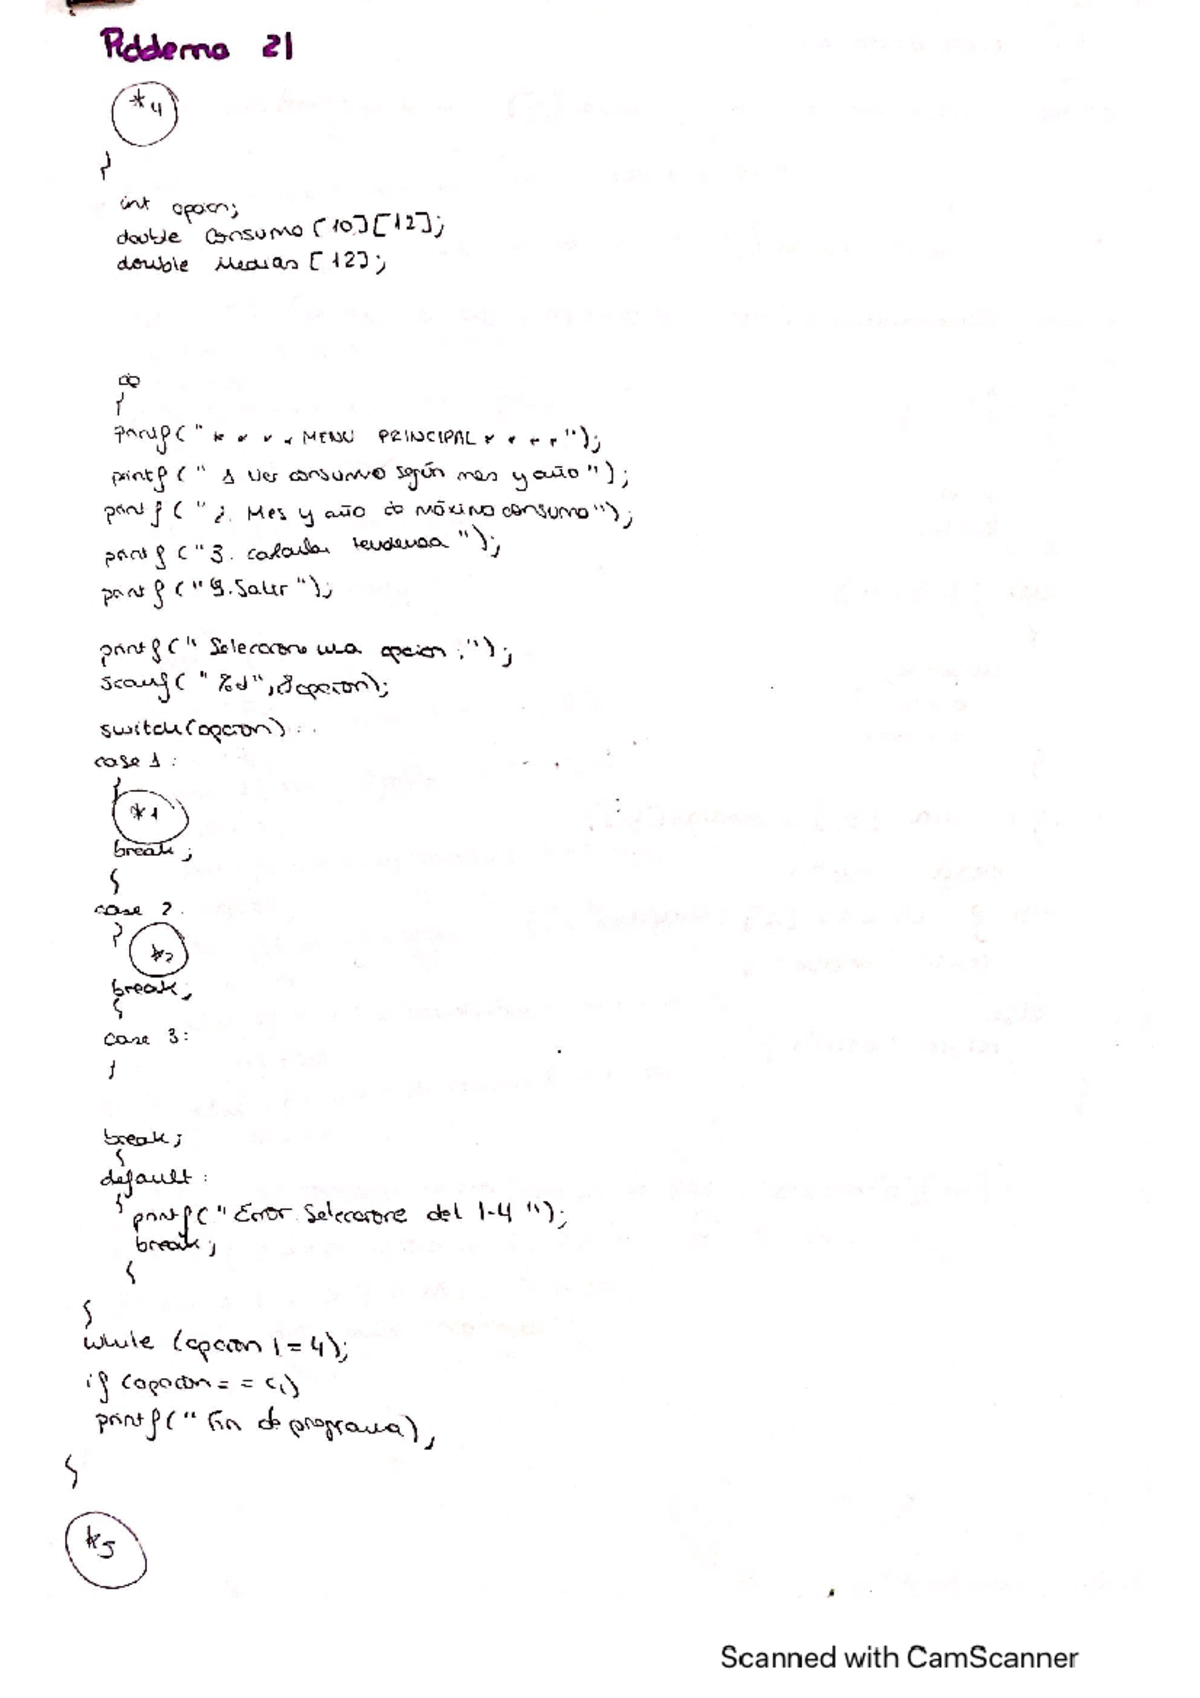 Problema 21
*4
{
int opcion;
double consumo [10][12];
double Medias [12];
do
{
printf(" * * * * MENU PRINCIPAL * * * * ");
printf (" 1 Ver consumo según mes y año ");
printf (" 2. Mes y año de máximo consumo");
printf ("3. calcular tendencia ");
printf (" .Salir ");
printf (" Seleccione una opcion :");
scanf( " %d", &opcion);
switch(opcion)
case 1 :
{
*1
break ;
}
case 2.
{
*2
break;
}
case 3:
{
break;
}
default :
{
printf(" Error. Seleccione del 1-4 ");
break;
}
}
while (opcion != 4);
if (opcion = = 4)
printf (" Fin de programa),
}
*5
Scanned with CamScanner